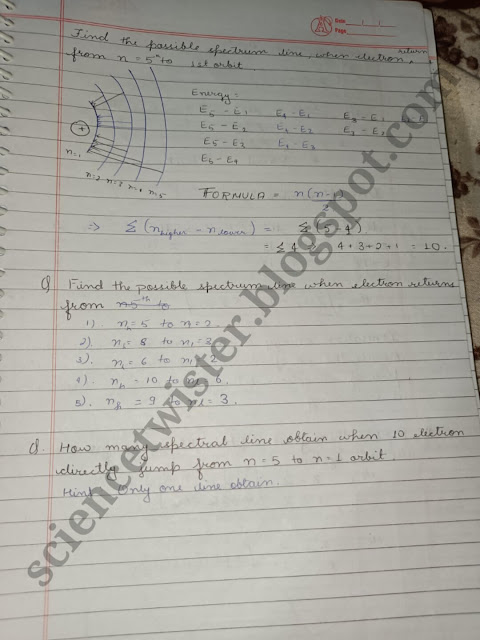 Date
Page
Find the possible spectrum line, when electron return
from n = 5th to 1st orbit
Energy:
E5 - E1 E4 - E1 E3 - E1
E5 - E2 E4 - E2 E3 - E2
E5 - E3 E4 - E3
E5 - E4
+
n=1
n=2 n=3 n=4 n=5
FORMULA = n(n-1)
2
⇒ Σ (nhigher - nlower) = Σ (5-4)
= Σ 4 4+3+2+1 = 10.
Q Find the possible spectrum line when electron returns
from n5th to
1). n2 = 5 to n = 2.
2). n2 = 8 to n1 =
3). n2 = 6 to n1 = 2
4). nh = 10 to nl = 6.
5). nh = 9 to nl = 3.
Q. How many spectral line obtain when 10 electron
directly jump from n = 5 to n = 1 orbit.
Hint Only one line obtain.
sciencetwister.blogspot.com